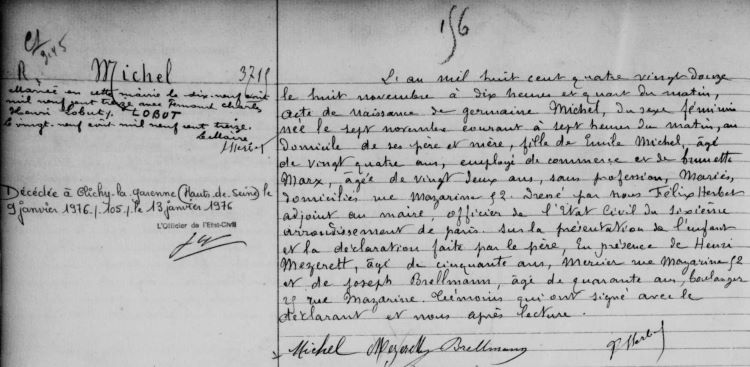 156
R, Michel 3715
Mariée en cette mairie le six neuf avril
mil neuf cent treize avec Fernand Charles
Henri Lobut /. LOBUT
le vingt neuf avril mil neuf cent treize.
Le Maire
Décédée à Clichy-la-Garenne (Hauts-de-Seine) le
9 janvier 1976 /. 105 /. le 13 janvier 1976
L'Officier de l'Etat-Civil
L'an mil huit cent quatre vingt douze
le huit novembre à dix heures et quart du matin,
acte de naissance de Germaine Michel, du sexe féminin
née le sept novembre courant à sept heures du matin, au
domicile de ses père et mère, fille de Emile Michel, âgé
de vingt quatre ans, employé de commerce et de
Marx, âgée de vingt deux ans, sans profession, Mariés,
domiciliés rue Mazarine 52. Dressé par nous Félix Herbet
adjoint au maire, officier de l'Etat Civil du sixième
arrondissement de Paris. Sur la présentation de l'enfant
et la déclaration faite par le père, En présence de Henri
Mezerett, âgé de cinquante ans, Mercier rue Mazarine 52
et de Joseph Brellmann, âgé de quarante ans, boulanger
25 rue Mazarine. Témoins qui ont signé avec le
déclarant et nous après lecture.
Michel Mezerett Brellmann F Herbet